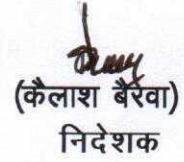 (कैलाश बैरवा)
निदेशक